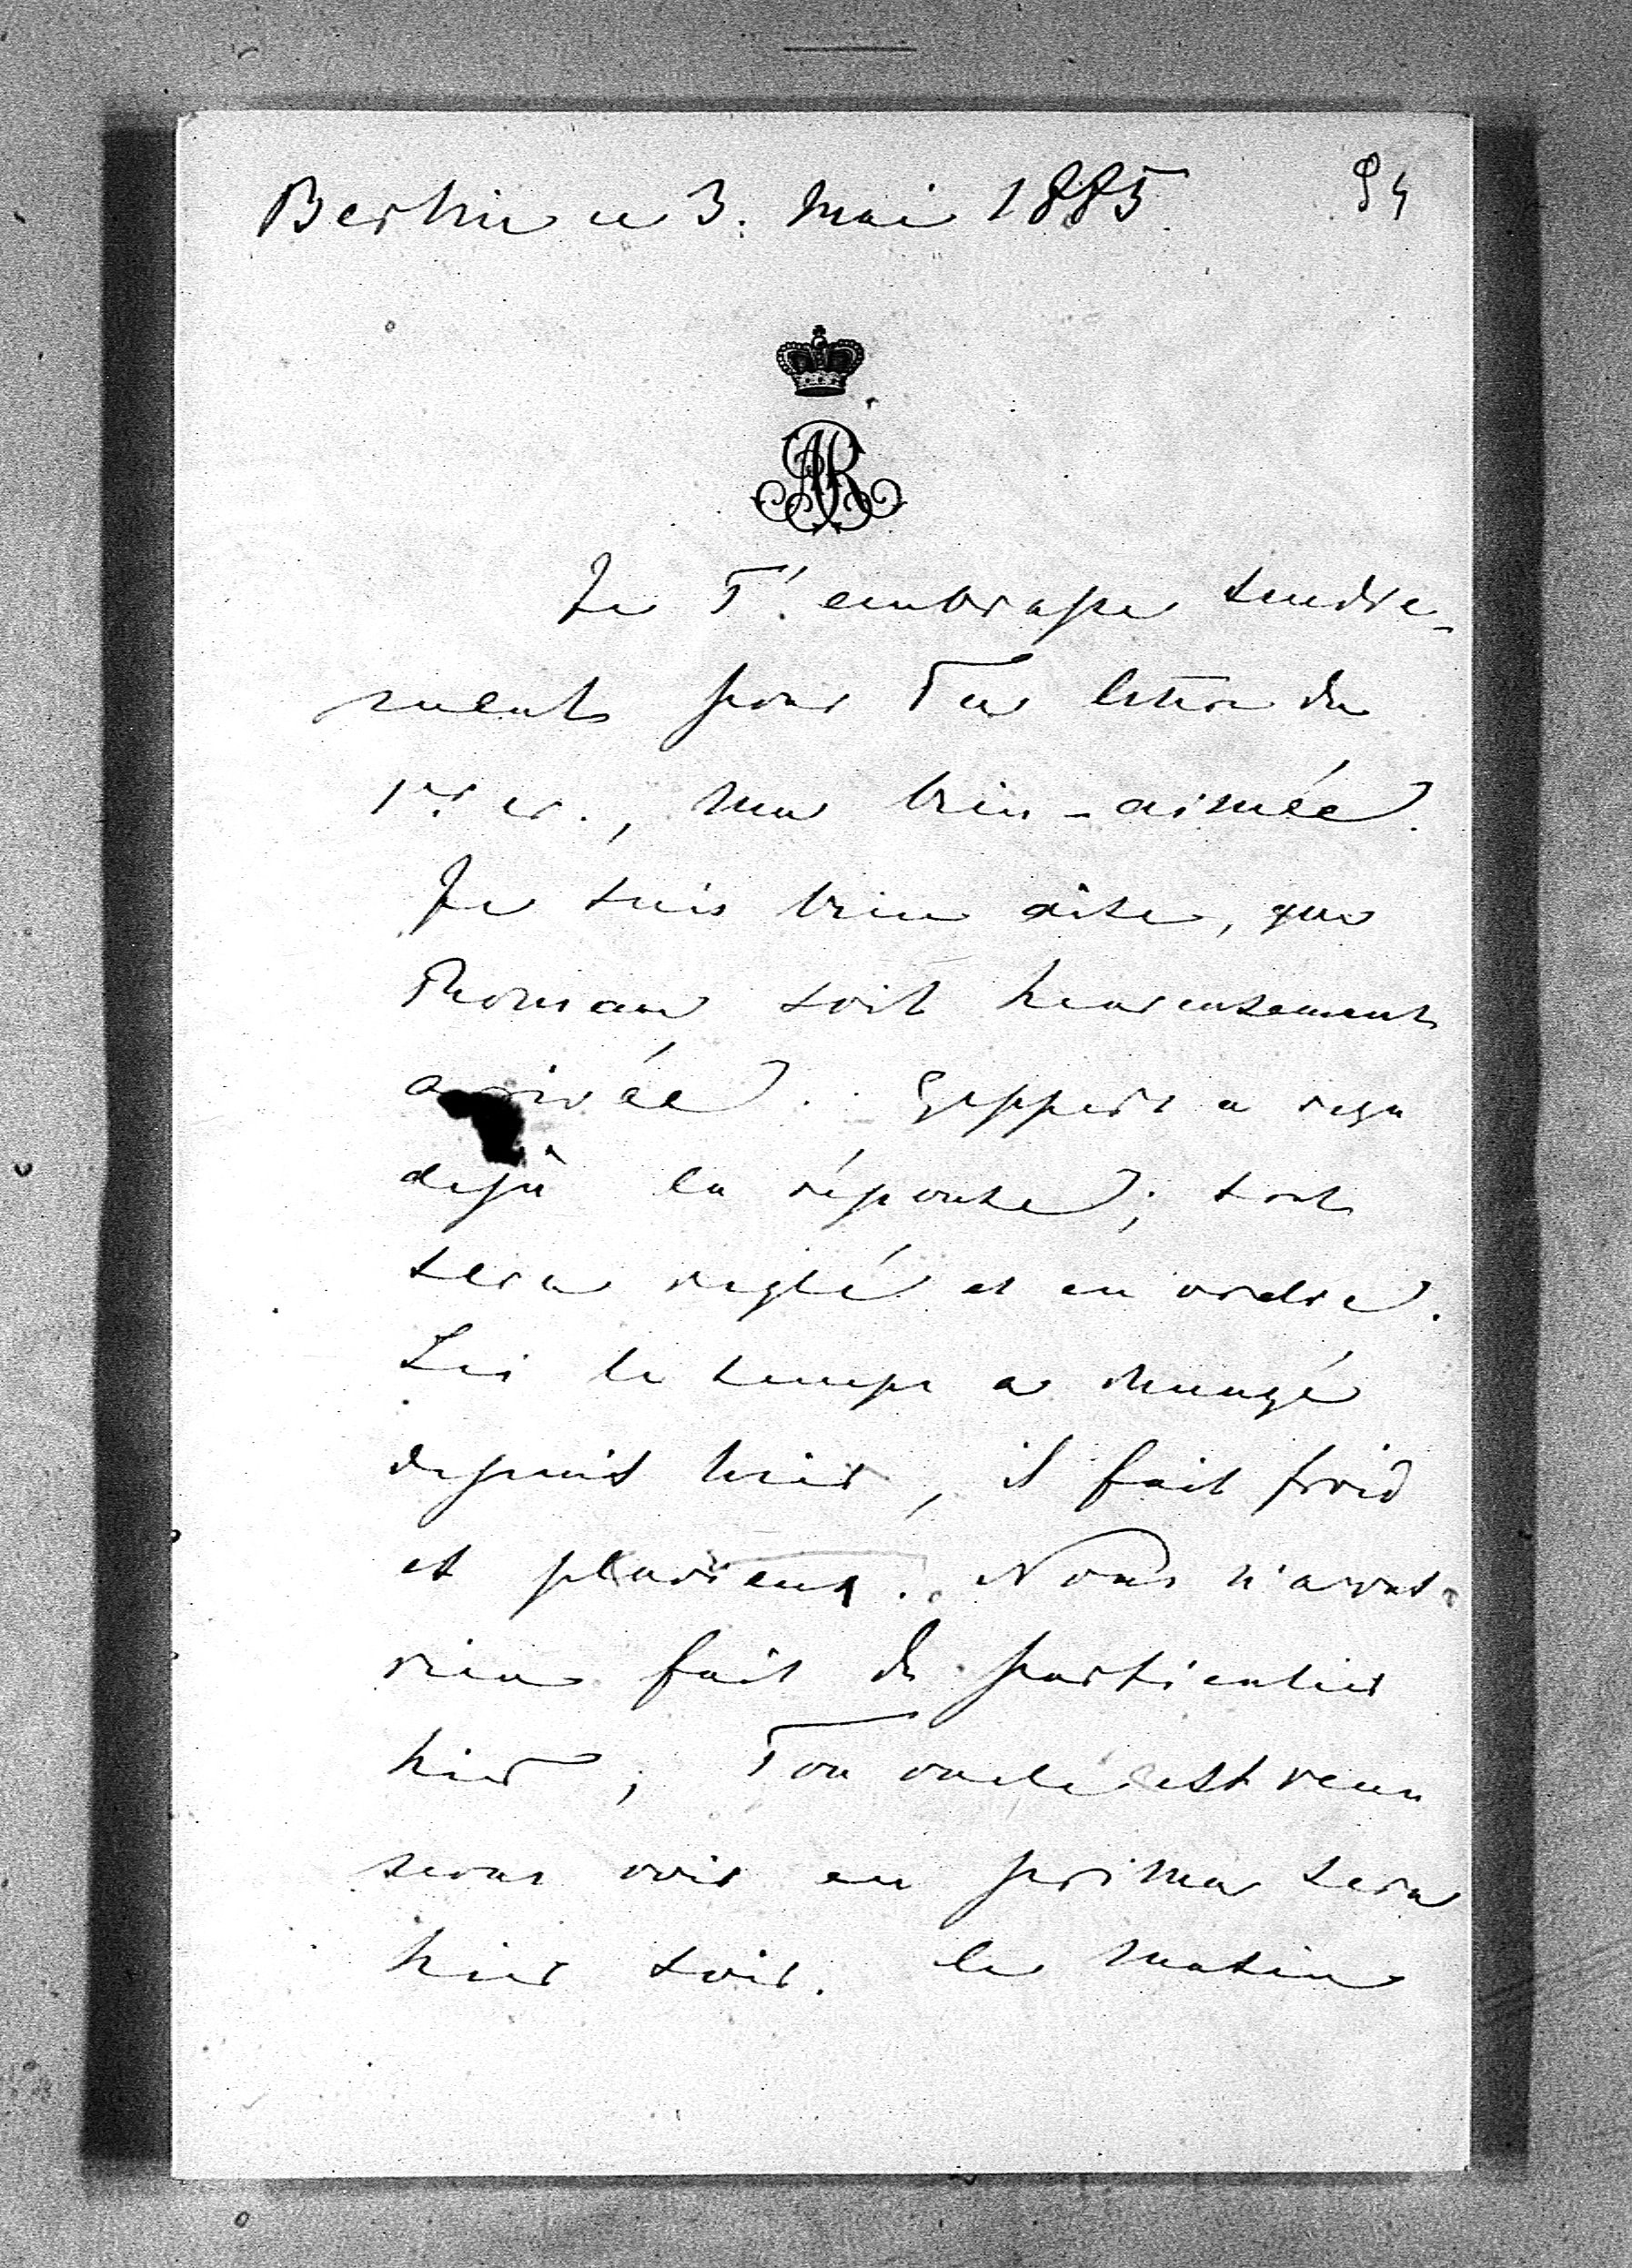 Berlin ce 3. Mai 1885. 94
AR
Je T'embrasse tendre-
ment pour Ta lettre du
1er cr., ma bien-aimée.
Je suis bien aise, que
soit heureusement
arrivée. Geppert a reçu
dejà la réponse; tout
sera reglé et en ordre.
Ici le temps a changé
depuis hier, il fait froid
et pluvieux. Nous n'avons
rien fait de particulier
hier; Ton oncle est venu
nous voir en prima sera
hier soir. Le matin